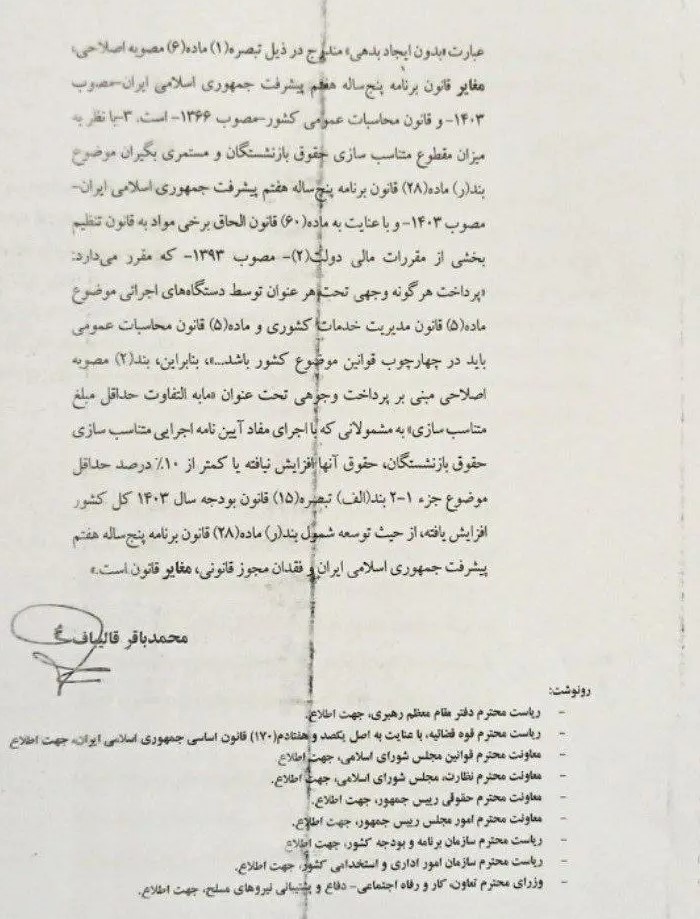 عبارت «بدون ایجاد بدهی» مندرج در ذیل تبصره(۱) ماده(۶) مصوبه اصلاحی،
مغایر قانون برنامه پنج‌ساله هفتم پیشرفت جمهوری اسلامی ایران-مصوب
۱۴۰۳- و قانون محاسبات عمومی کشور-مصوب ۱۳۶۶- است. ۳-با نظر به
میزان مقطوع متناسب سازی حقوق بازنشستگان و مستمری بگیران موضوع
بند(ر) ماده(۲۸) قانون برنامه پنج‌ساله هفتم پیشرفت جمهوری اسلامی ایران-
مصوب ۱۴۰۳- و با عنایت به ماده(۶۰) قانون الحاق برخی مواد به قانون تنظیم
بخشی از مقررات مالی دولت(۲)- مصوب ۱۳۹۳- که مقرر می‌دارد:
«پرداخت هرگونه وجهی تحت هر عنوان توسط دستگاه‌های اجرائی موضوع
ماده(۵) قانون مدیریت خدمات کشوری و ماده(۵) قانون محاسبات عمومی
باید در چهارچوب قوانین موضوع کشور باشد...»، بنابراین، بند(۲) مصوبه
اصلاحی مبنی بر پرداخت وجوهی تحت عنوان «مابه التفاوت حداقل مبلغ
متناسب سازی» به مشمولانی که با اجرای مفاد آیین نامه اجرایی متناسب سازی
حقوق بازنشستگان، حقوق آنها افزایش نیافته یا کمتر از ۱۰٪ درصد حداقل
موضوع جزء ۱-۲ بند(الف) تبصره(۱۵) قانون بودجه سال ۱۴۰۳ کل کشور
افزایش یافته، از حیث توسعه شمول بند(ر) ماده(۲۸) قانون برنامه پنج‌ساله هفتم
پیشرفت جمهوری اسلامی ایران و فقدان مجوز قانونی، مغایر قانون است.»
محمدباقر قالیباف
رونوشت:
- ریاست محترم دفتر مقام معظم رهبری، جهت اطلاع.
- ریاست محترم قوه قضائیه، با عنایت به اصل یکصد و هفتادم(۱۷۰) قانون اساسی جمهوری اسلامی ایران، جهت اطلاع
- معاونت محترم قوانین مجلس شورای اسلامی، جهت اطلاع
- معاونت محترم نظارت، مجلس شورای اسلامی، جهت اطلاع.
- معاونت محترم حقوقی رییس جمهور، جهت اطلاع.
- معاونت محترم امور مجلس رییس جمهور، جهت اطلاع.
- ریاست محترم سازمان برنامه و بودجه کشور، جهت اطلاع
- ریاست محترم سازمان امور اداری و استخدامی کشور، جهت اطلاع.
- وزرای محترم تعاون، کار و رفاه اجتماعی- دفاع و پشتیبانی نیروهای مسلح، جهت اطلاع.